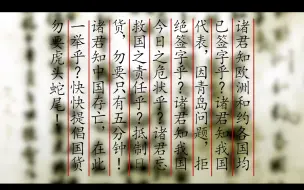 诸君知欧洲和约各国均
已签字乎？诸君知我国
代表，因青岛问题，拒
绝签字乎？诸君知我国
今日之危状乎？诸君忘
救国之责任乎？抵制日
货，勿要只有五分钟！
诸君知中国存亡，在此
一举乎？快快提倡国货
勿要虎头蛇尾！